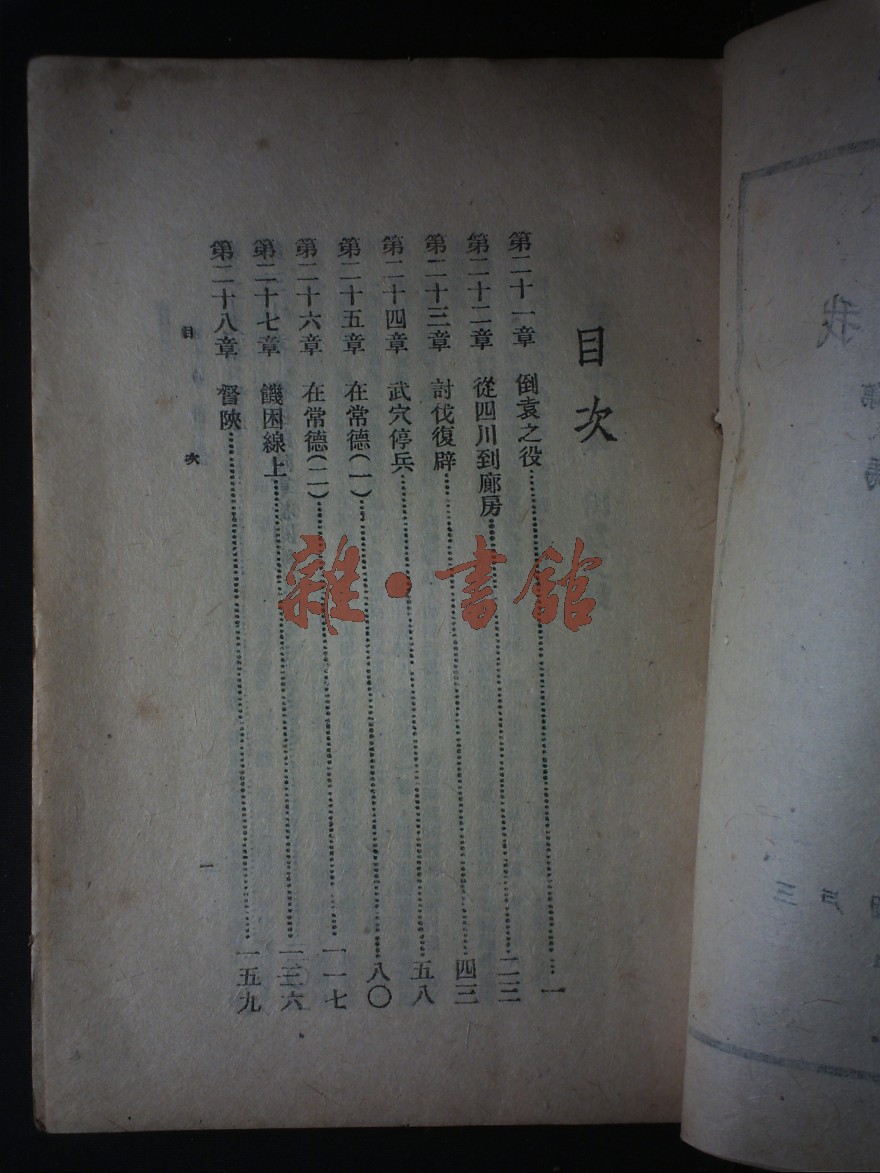 目次
第二十一章 倒袁之役……一
第二十二章 從四川到廊房……二三
第二十三章 討伐復辟……四三
第二十四章 武穴停兵……五八
第二十五章 在常德(一)……八〇
第二十六章 在常德(二)……一一七
第二十七章 饑困線上……一三六
第二十八章 督陝……一五九
目次
一
雜·書館
我
三戶